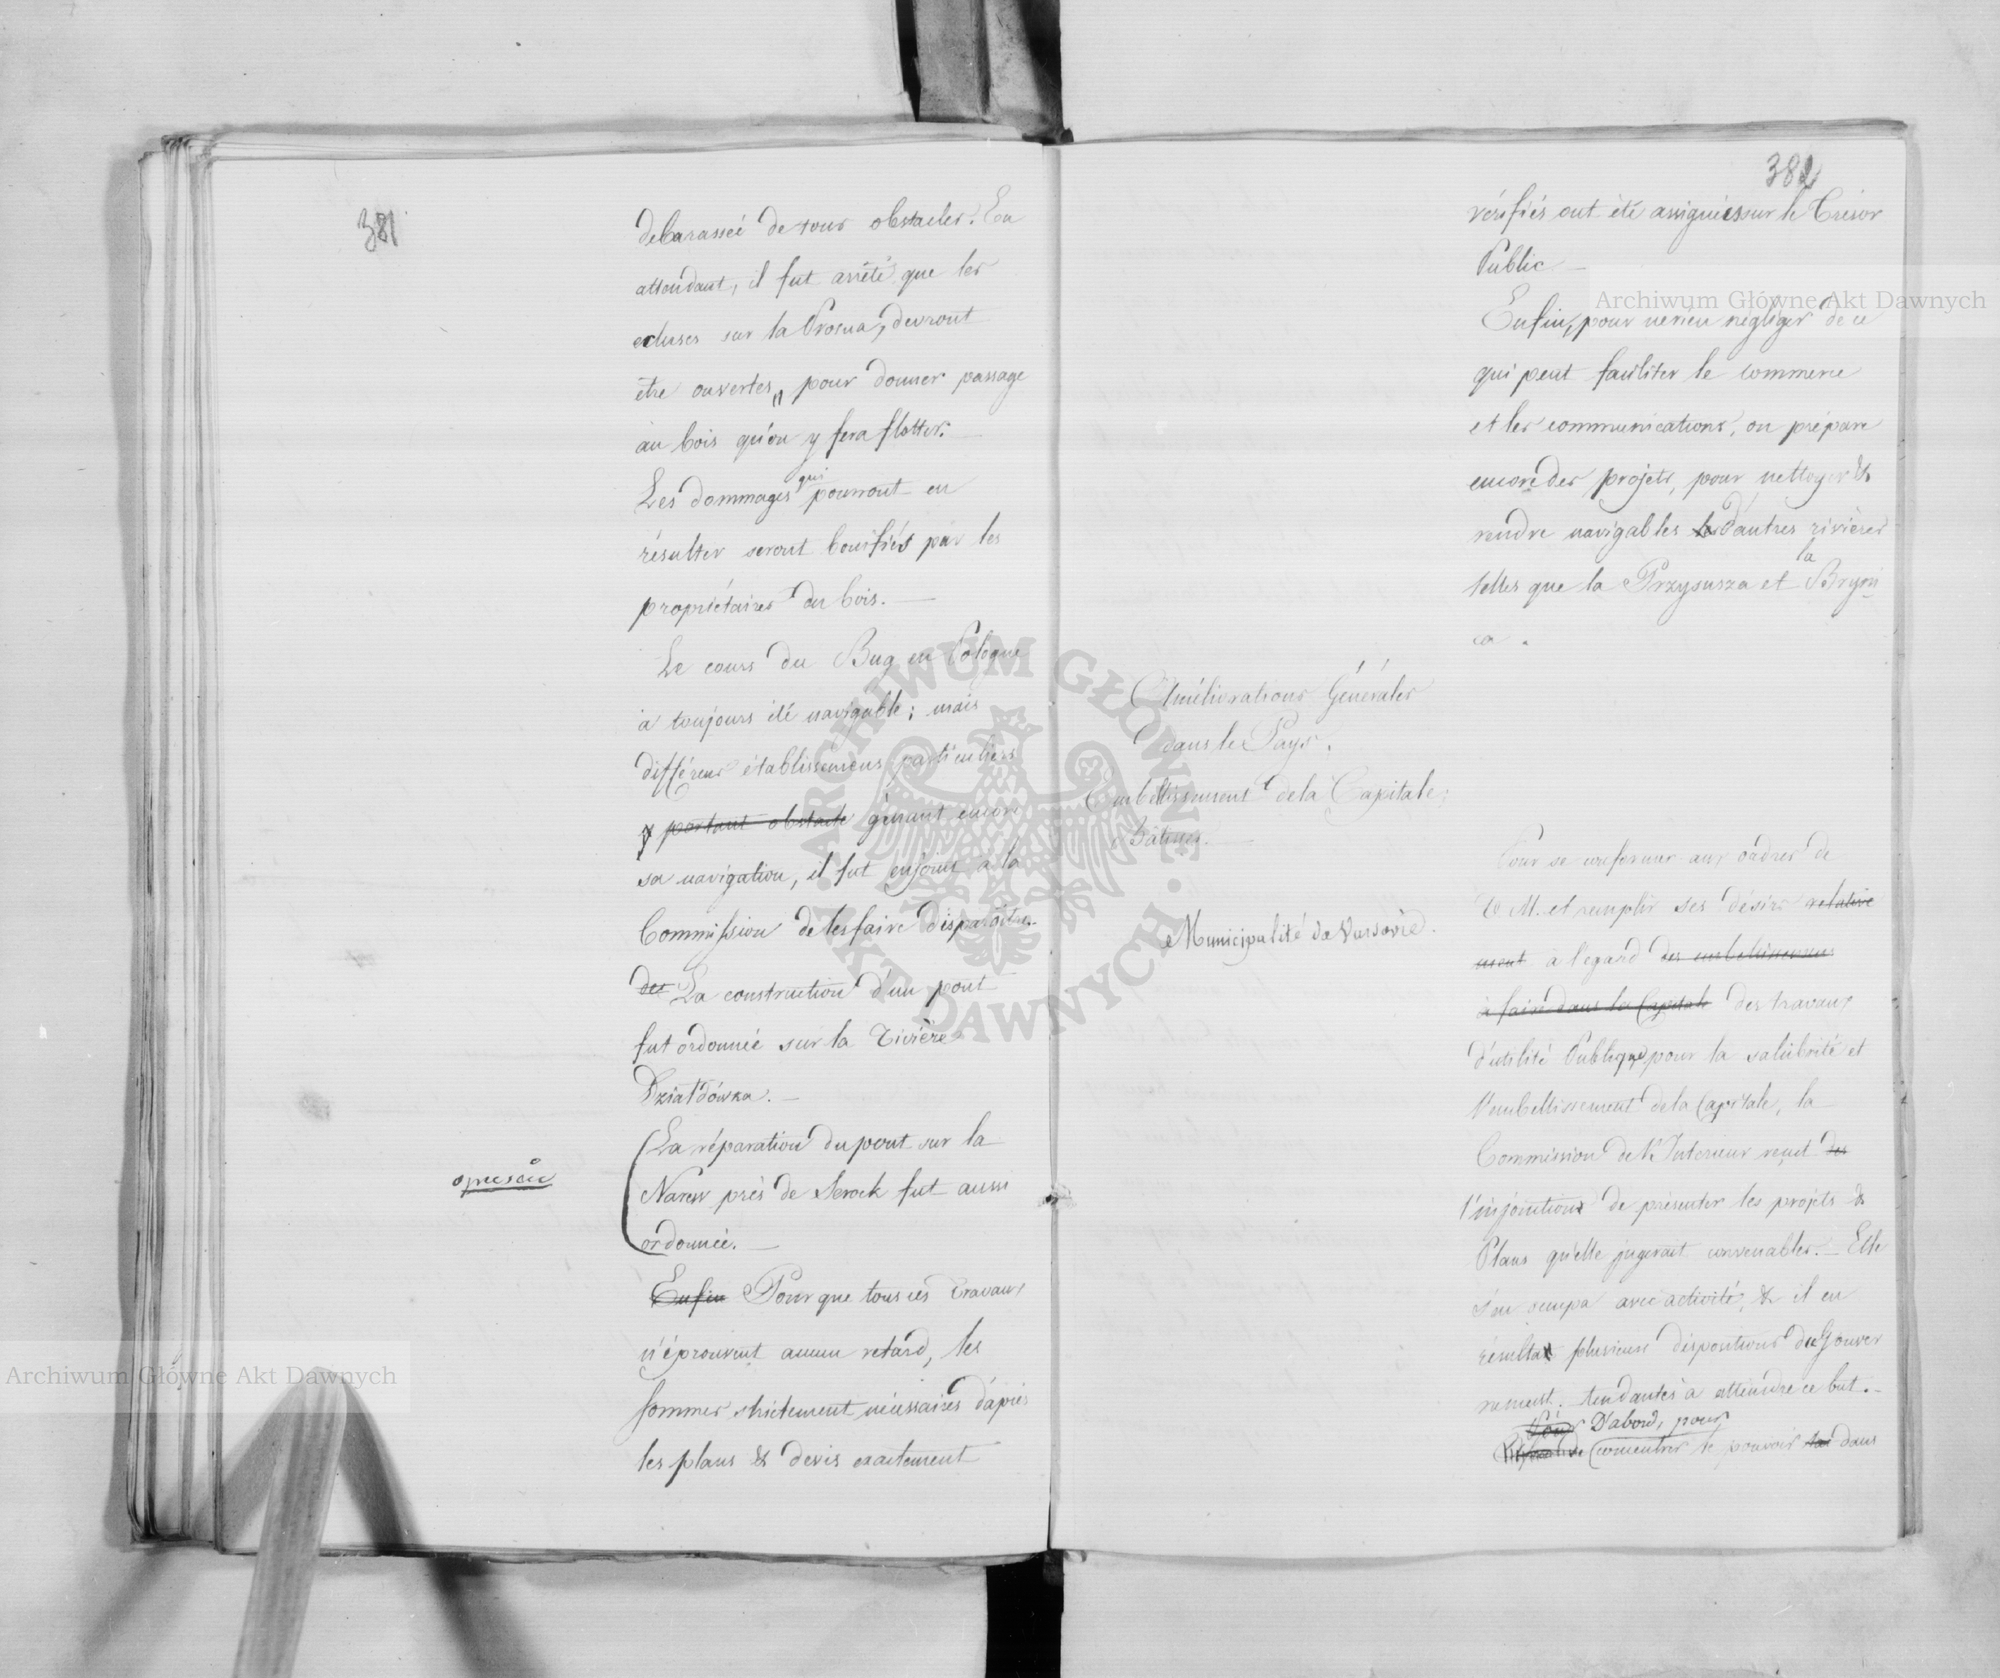 381
debarassée de tous obstacles. En
attendant, il fut arrêté que les
ecluses sur la Prosna, devront
être ouvertes, pour donner passage
au bois qu'on y fera flotter. —
Les dommages qui pourront en
résulter seront bonifiés par les
propriétaires du bois. —
Le cours du Bug en Pologne
a toujours été navigable; mais
différens établissemens particuliers
y portant obstacle gênant encore
sa navigation, il fut enjoint a la
Commission de les faire disparoître. —
des La construction d'un pont
fut ordonnée sur la rivière
Działdówka. —
(La réparation du pont sur la
Narew près de Serock fut aussi
ordonnée. —
Enfin Pour que tous ces travaux
n'éprouvent aucun retard, les
sommes strictement nécessaires d'après
les plans & devis exactement
382
vérifiés ont été assignées sur le Trésor
Public —
Enfin, pour ne rien négliger de ce
qui peut faciliter le commerce
et les communications, on prépare
encore des projets, pour nettoyer &
rendre navigables les d'autres rivières
telles que la Przysusza et la Bryni
ca.
Améliorations Générales
dans le Pays.
Embellissemens de la Capitale;
bâtisses. —
Municipalité de Varsovie.
Pour se conformer aux ordres de
V. M. et remplir ses désirs relative
ment à l'egard des embellissemens
à faire dans la Capitale des travaux
d'utilité Publique pour la salubrité et
l'embellissement de la Capitale, la
Commission de l'Interieur reçut des
l'injonction de présenter les projets &
Plans qu'elle jugerait convenables. — Elle
s'en occupa avec activité, & il en
résulta plusieurs dispositions du Gouver
nement. tendantes a atteindre ce but. —
Pour D'abord, pour
concentrer le pouvoir dans
Archiwum Główne Akt Dawnych
Archiwum Główne Akt Dawnych
ARCHIWUM GŁÓWNE AKT DAWNYCH